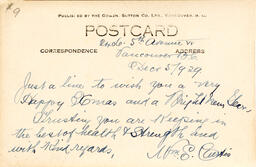 #9
PUBLISHED BY THE GOWEN, SUTTON CO. LTD., VANCOUVER, B. C.
POSTCARD
CORRESPONDENCE
ADDRESS
5th Avenue W
Vancouver B.C.
Dec 5/929
Just a line to wish you a very
Happy Xmas and a Bright New Year,
Trusting you are keeping in
the best of health & Strength and
with kind regards,
E. Curtis